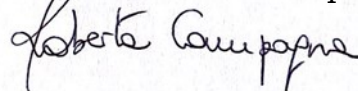 Roberta Campagna